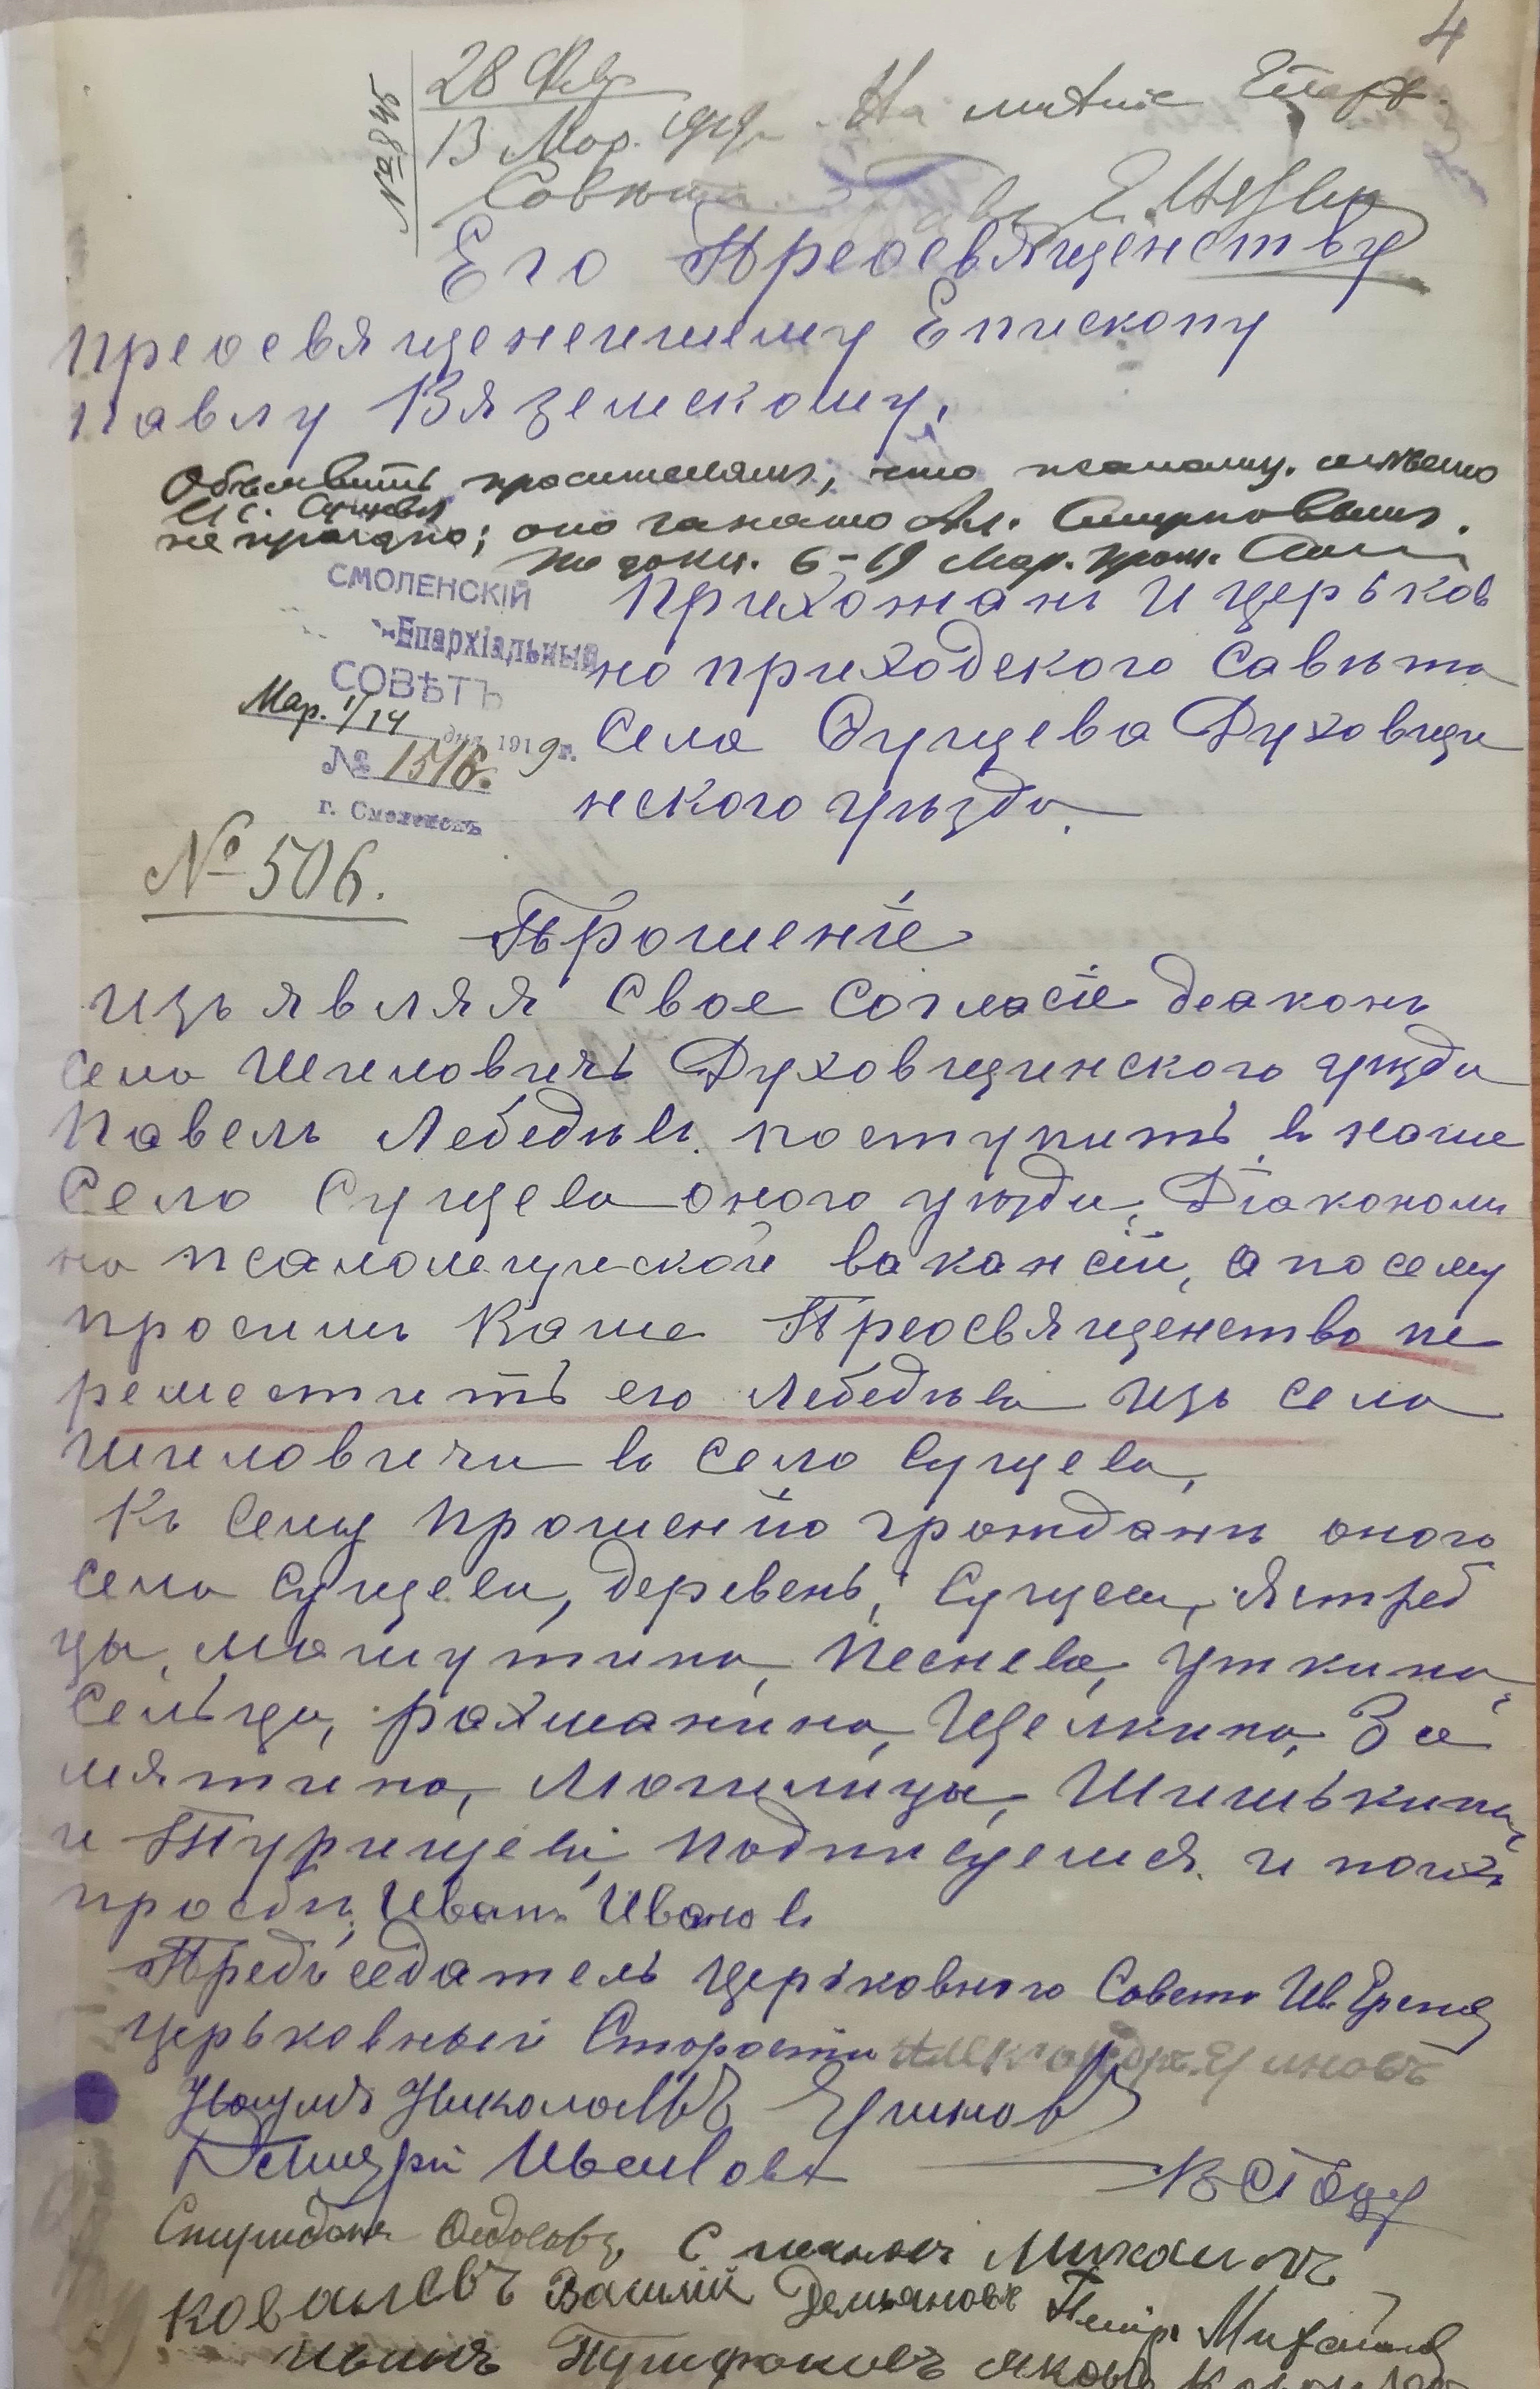 4
№ 845
28 Февр
13 Мар. 1919 г. На мнѣніе Епарх.
Совѣта. Е. Павелъ
Его Преосвященству
преосвященнейшему Епископу
Павлу Вяземскому,
Объявить просителямъ, что псаломщ. мѣсто
въ с. Сущевѣ
не праздно; оно занято Ал. Смирновымъ.
6-19 Мар. Прот.
СМОЛЕНСКІЙ
Епархіальный
СОВѢТЪ
Мар. 1/14 дня 1919 г.
№ 1516.
г. Смоленскъ
Прихожанъ и церьков
но приходского Савѣта
Села Сущева Духовщи
нского уѣзда.
№ 506.
Прошеніе
изъявляя Свое Согласіе деаконъ
села Шиловичь Духовщинского уезда
Павелъ Лебедѣвъ поступить в наше
Село Сущева оного уезда, Діакономъ
на псаломещической вакансіи, а посему
просимъ Ваше Преосвященство пе
реместить его Лебедѣва изъ села
Шиловичи в село Сущева,
Къ сему прошенію граждани оного
села Сущева, деревень, Сущева, Ястреб
цы, Машутина, Песнева, Уткина,
Сельца, рахманина, Щелкина, За
мятина, Могилицы, Шишькина,
и Турищева подписуемся и по их
просби, Иванъ Иванов
Предъседатель Церьковного Совета Ив.
Церьковный Староста Александръ
Наумъ Николаевъ
Дмитрій Ивановъ
Спиридонъ Федосовъ, Семенъ Михаиловъ
Ковалевъ Василій Демьяновъ Петръ Михайловъ
Иванъ Яковъ